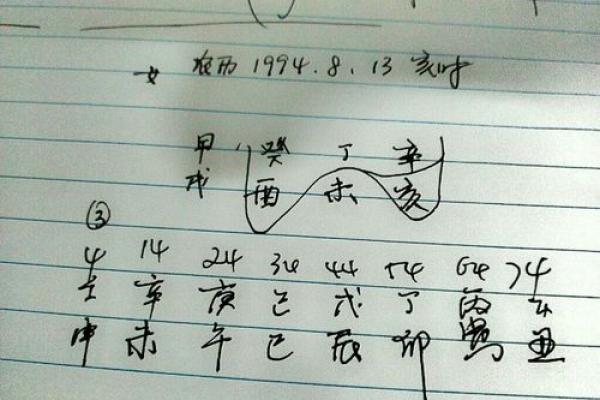 女 农历 1994.8.13 亥时
甲 癸 丁 辛
戌 酉 未 亥
③
4 14 24 34 44 54 64 74
壬 辛 庚 己 戊 丁 丙 乙
申 未 午 巳 辰 卯 寅 丑